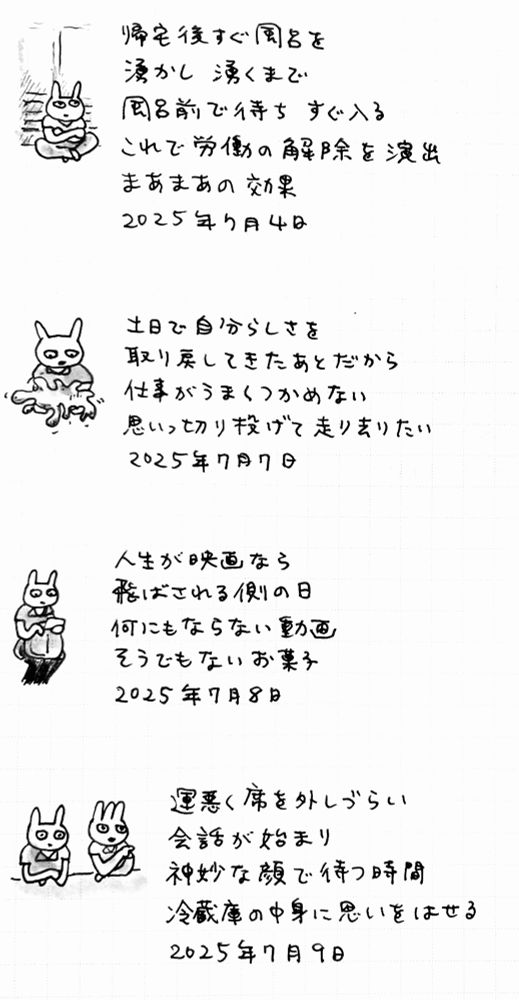 帰宅後すぐ風呂を
湧かし 湧くまで
風呂前で待ち すぐ入る
これで労働の解除を演出
まあまあの効果
2025年7月4日
土日で自分らしさを
取り戻してきたあとだから
仕事がうまくつかめない
思いっ切り投げて走り去りたい
2025年7月7日
人生が映画なら
飛ばされる側の日
何にもならない動画
そうでもないお菓子
2025年7月8日
運悪く席を外しづらい
会話が始まり
神妙な顔で待つ時間
冷蔵庫の中身に思いをはせる
2025年7月9日